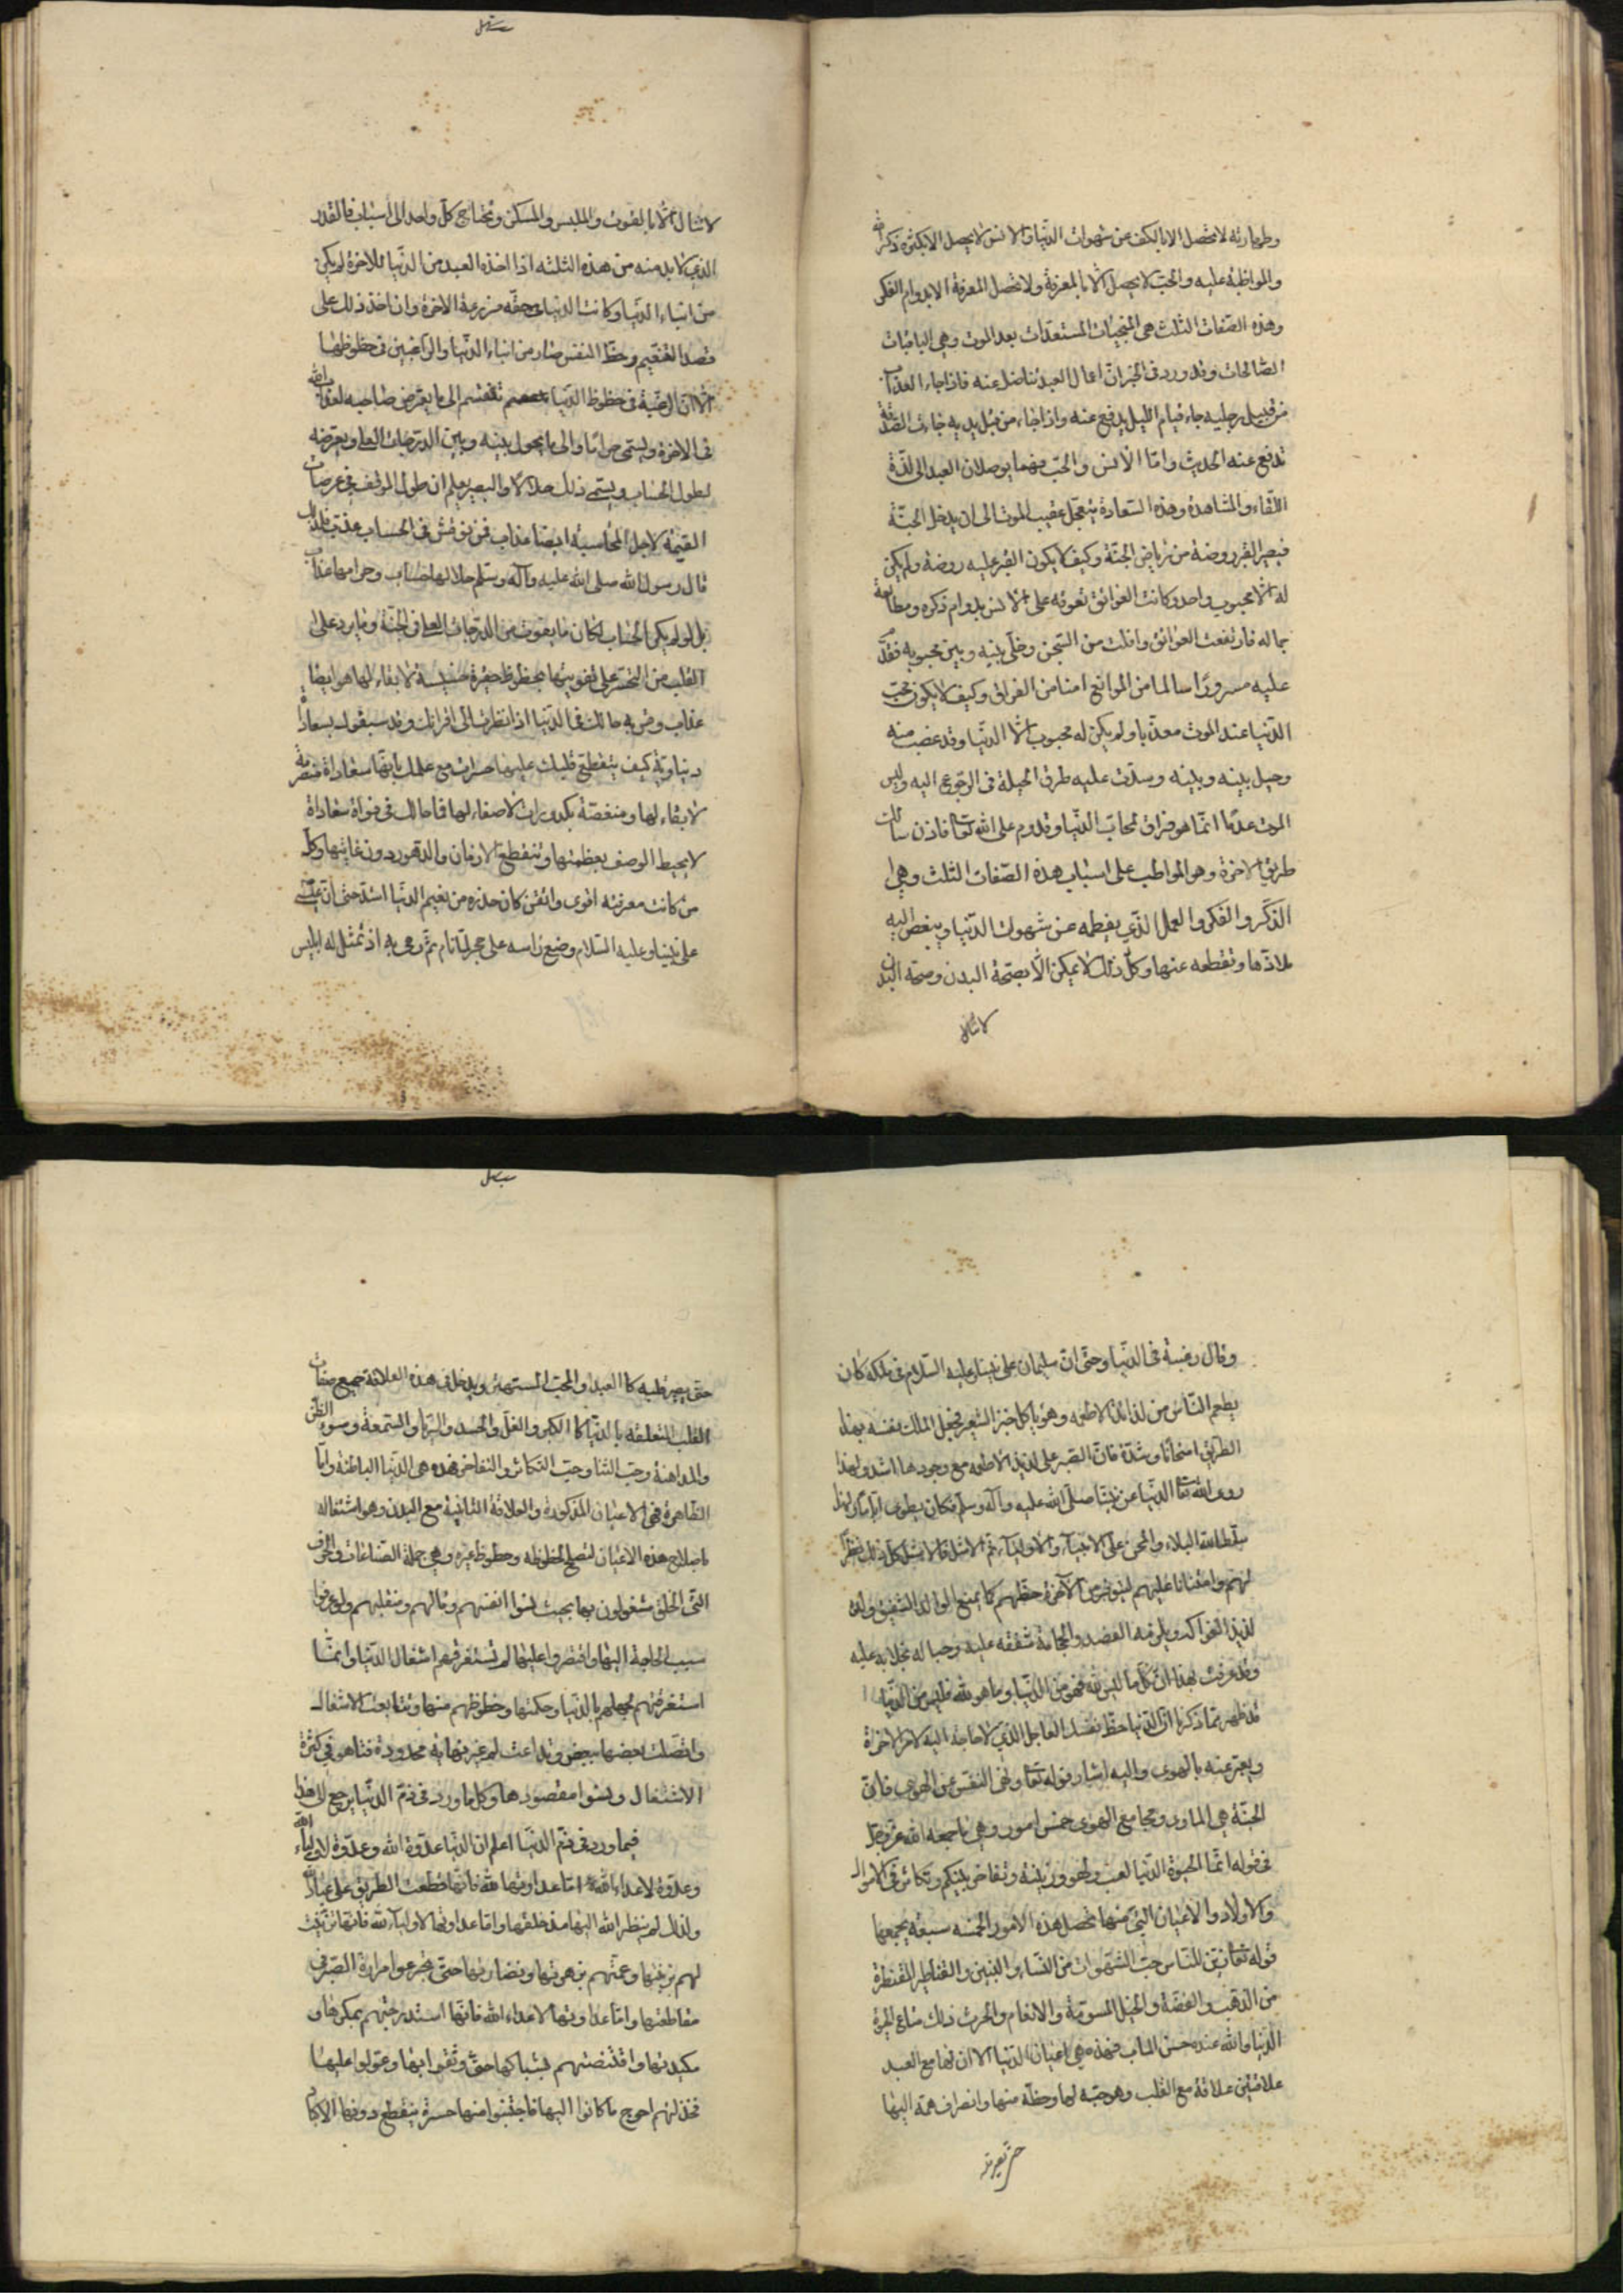 وطهارته لا تحصل الا بالكف عن شهوات الدنيا والانس لا يحصل الا بكثرة ذكر الله
والمواظبة عليه والحب لا يحصل الا بالمعرفة ولا تحصل المعرفة الا بدوام الفكر
وهذه الصفات الثلث هى المنجيات المستعدات بعد الموت وهى الباقيات
الصالحات وقد ورد فى الخبر ان اعمال العبد تناضل عنه فاذا جاء العذاب
من قبيل رجليه جاء قيام الليل يدفع عنه واذا جاء من قبل يديه جاءت الصدقة
تدفع عنه الحديث واما الانس والحب فهما يوصلان العبد الى لذة
اللقاء والمشاهدة وهذه السعادة يتعجل عقيب الموت الى ان يدخل الجنة
فيصير القبر روضة من رياض الجنة وكيف لا يكون القبر عليه روضة ولم يكن
له الا محبوب واحد وكانت العوائق تعوقه على الانس بدوام ذكره ومطالعة
جماله فارتفعت العوائق وافلت من السجن وخلى بينه وبين محبوبه فقدم
عليه مسرورا سالما من الموانع امنا من الفراق وكيف لا يكون محب
الدنيا عند الموت معذبا ولم يكن له محبوب الا الدنيا وقد غصب منه
وحيل بينه وبينه وسدت عليه طرق الحيلة فى الرجوع اليه وليس
الموت عدما انما هو فراق لمحاب الدنيا وقدوم على الله تعا فاذن سالك
طريق الاخرة وهو المواظب على اسباب هذه الصفات الثلث وهى
الذكر والفكر والعمل الذى يفطمه عن شهوات الدنيا ويبغض اليه
ملاذها وتقطعه عنها وكل ذلك لا يمكن الا بصحة البدن وصحة البدن
لا تنال
لا تنال الا بالقوت والملبس والمسكن وتحتاج كل واحد الى اسباب فالقدر
الذى لا بد منه من هذه الثلثه اذا اخذه العبد من الدنيا للاخرة لم يكن
من ابناء الدنيا وكانت الدنيا فى حقه مزرعة الاخرة وان اخذ ذلك على
قصد التنعيم وحظ النفس صار من ابناء الدنيا والراغبين فى حظوظها
الا ان الرغبة فى حظوظ الدنيا تنقسم الى ما يعرض صاحبه لعذاب الله
فى الاخرة ويسمى حراما والى ما يحول بينه وبين الدرجات العلى ويعرضه
لطول الحساب ويسمى ذلك حلالا والبصير يعلم ان طول الموقف فى عرصات
القيمة لاجل المحاسبة ايضا عذاب فمن نوقش فى الحساب عذب فلذلك
قال رسول الله صلى الله عليه وآله وسلم حلالها حساب وحرامها عذاب
بل لو لم يكن الحساب لكان ما يفوت من الدرجات العلى فى الجنة وما يرد على
القلب من التحسر على تفويتها بحظوظ حقيرة خسيسة لا بقاء لها هو ايضا
عذاب وقس به حالك فى الدنيا اذا نظرت الى اقرانك وقد سبقوك بسعادات
دنياوية كيف يتقطع قلبك عليها حسرات مع علمك بانها سعادات منصرمة
لا بقاء لها ومنغصة بكدورات لا صفاء لها فما حالك فى فوات سعادات
لا يحيط الوصف بعظمتها وتنقطع الازمان والدهور دون غايتها وكل
من كانت معرفته اقوى واتقن كان حذره من نعيم الدنيا اشد حتى ان عيسى
على نبينا وعليه السلام وضع راسه على حجر لما نام ثم رمى به اذ تمثل له ابليس
وقال رغبة فى الدنيا وحتى ان سليمان على نبينا وعليه السلام فى ملكه كان
يطعم الناس من لذائذ الاطعمه وهو ياكل خبز الشعير فجعل الملك نفسه بهذا
الطريق امتحانا وشدة فان الصبر على لذيذ الاطعمه مع وجودها اشد ولهذا
روى الله تعا الدنيا عن نبينا صلى الله عليه وآله وسلم فكان يطوى اياما ولهذا
سلط الله البلاء والمحن على الانبياء والاولياء ثم الامثل فالامثل كل ذلك نظرا
لهم وامتنانا عليهم ليتوفر من الآخرة حظهم كما يمنع الوالد الشفيق ولده
لذيذ الفواكه ويلزمه الفصد والحجامة شفقه عليه وحبا له لا بخلا به عليه
وقد عرفت بهذا ان كل ما ليس لله فهو من الدنيا وما هو لله فليس من الدنيا
قد ظهر مما ذكرنا ان الدنيا حظ نفسك العاجل الذى لا حاجة اليه لامر الاخرة
ويعبر عنه بالهوى واليه اشار قوله تعا ونهى النفس عن الهوى فان
الجنة هى الماوى ومجامع الهوى خمس امور وهى ما جمعه الله عز وجل
فى قوله انما الحيوة الدنيا لعب ولهو وزينة وتفاخر بينكم وتكاثر فى الاموال
والاولاد والاعيان التى منها تحصل هذه الامور الخمسه سبعة يجمعها
قوله تعا زين للناس حب الشهوات من النساء والبنين والقناطير المقنطرة
من الذهب والفضة والخيل المسومة والانعام والحرث ذلك متاع الحيوة
الدنيا والله عنده حسن الماب فهذه هى اعيان الدنيا الا ان لها مع العبد
علاقتين علاقة مع القلب وهو حبه لها وحظه منها وانصراف همه اليها
حتى يصير قلبه
حتى يصير قلبه كالعبد او المحب المستهتر ويدخل فى هذه العلاقة جميع صفات
القلب المتعلقه بالدنيا كالكبر والغل والحسد والريا والسمعة وسوء الظن
والمداهنة وحب الثنا وحب التكاثر والتفاخر فهذه هى الدنيا الباطنة واما
الظاهرة فهى الاعيان المذكورة والعلاقة الثانية مع البدن وهو اشتغاله
باصلاح هذه الاعيان لتصلح لحظوظه وحظوظ غيره وهى جملة الصناعات والحرف
التى الخلق مشغولون بها بحيث نسوا انفسهم ومالهم ومنقلبهم ولو عرفوا
سبب الحاجة اليها واقتصروا عليها لم تستغرقهم اشغال الدنيا وانما
استغرقتهم لجهلهم بالدنيا وحكمتها وحظوظهم منها وتتابعت الاشغال
واتصلت بعضها ببعض وتداعت لهم غير نهاية محدودة فتاهو فى كثرة
الاشتغال ونسوا مقصودها وكل ما ورد فى ذم الدنيا يرجع الى هذا
فيما ورد فى ذم الدنيا اعلم ان الدنيا عدوة الله وعدوة لاولياء الله
وعدوة لاعداء الله اما عداوتها لله فانها قطعت الطريق على عباد الله
ولذلك لم ينظر الله اليها منذ خلقها واما عداوتها لاولياء الله فانها تزينت
لهم بزينتها وعمتهم بزهرتها ونضارتها حتى تجرعوا مرارة الصبر فى
مقاطعتها واما عداوتها لاعداء الله فانها استدرجتهم بمكرها و
مكيدتها واقتنصتهم بشباكها حتى وثقوا بها وعولوا عليها
فخذلتهم احوج ما كانوا اليها فاجتنبوا منها حسرة ينقطع دونها الاكباد